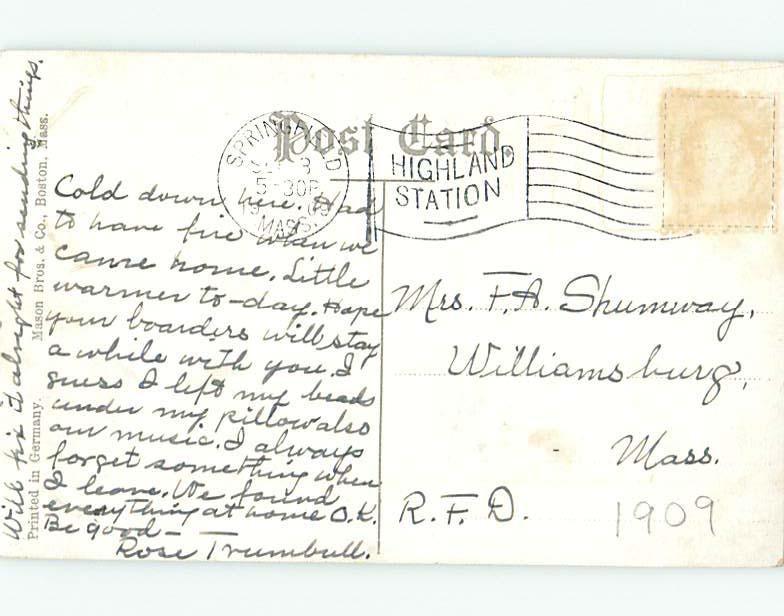 Post Card.
SPRINGFIELD
3
5-30P
MASS.
HIGHLAND
STATION
Cold down here. Had
to have fire when we
came home. Little
warmer to-day. Hope
your boarders will stay
a while with you. I
guess I left my beads
under my pillow also
our music. I always
forget something when
I leave. We found
everything at home O.K.
Be good —
Rose Trumbull.
Will fix it alright for sending things.
Printed in Germany. Mason Bros. & Co., Boston, Mass.
Mrs. F.A. Shumway,
Williamsburg,
Mass.
R.F.D.
1909